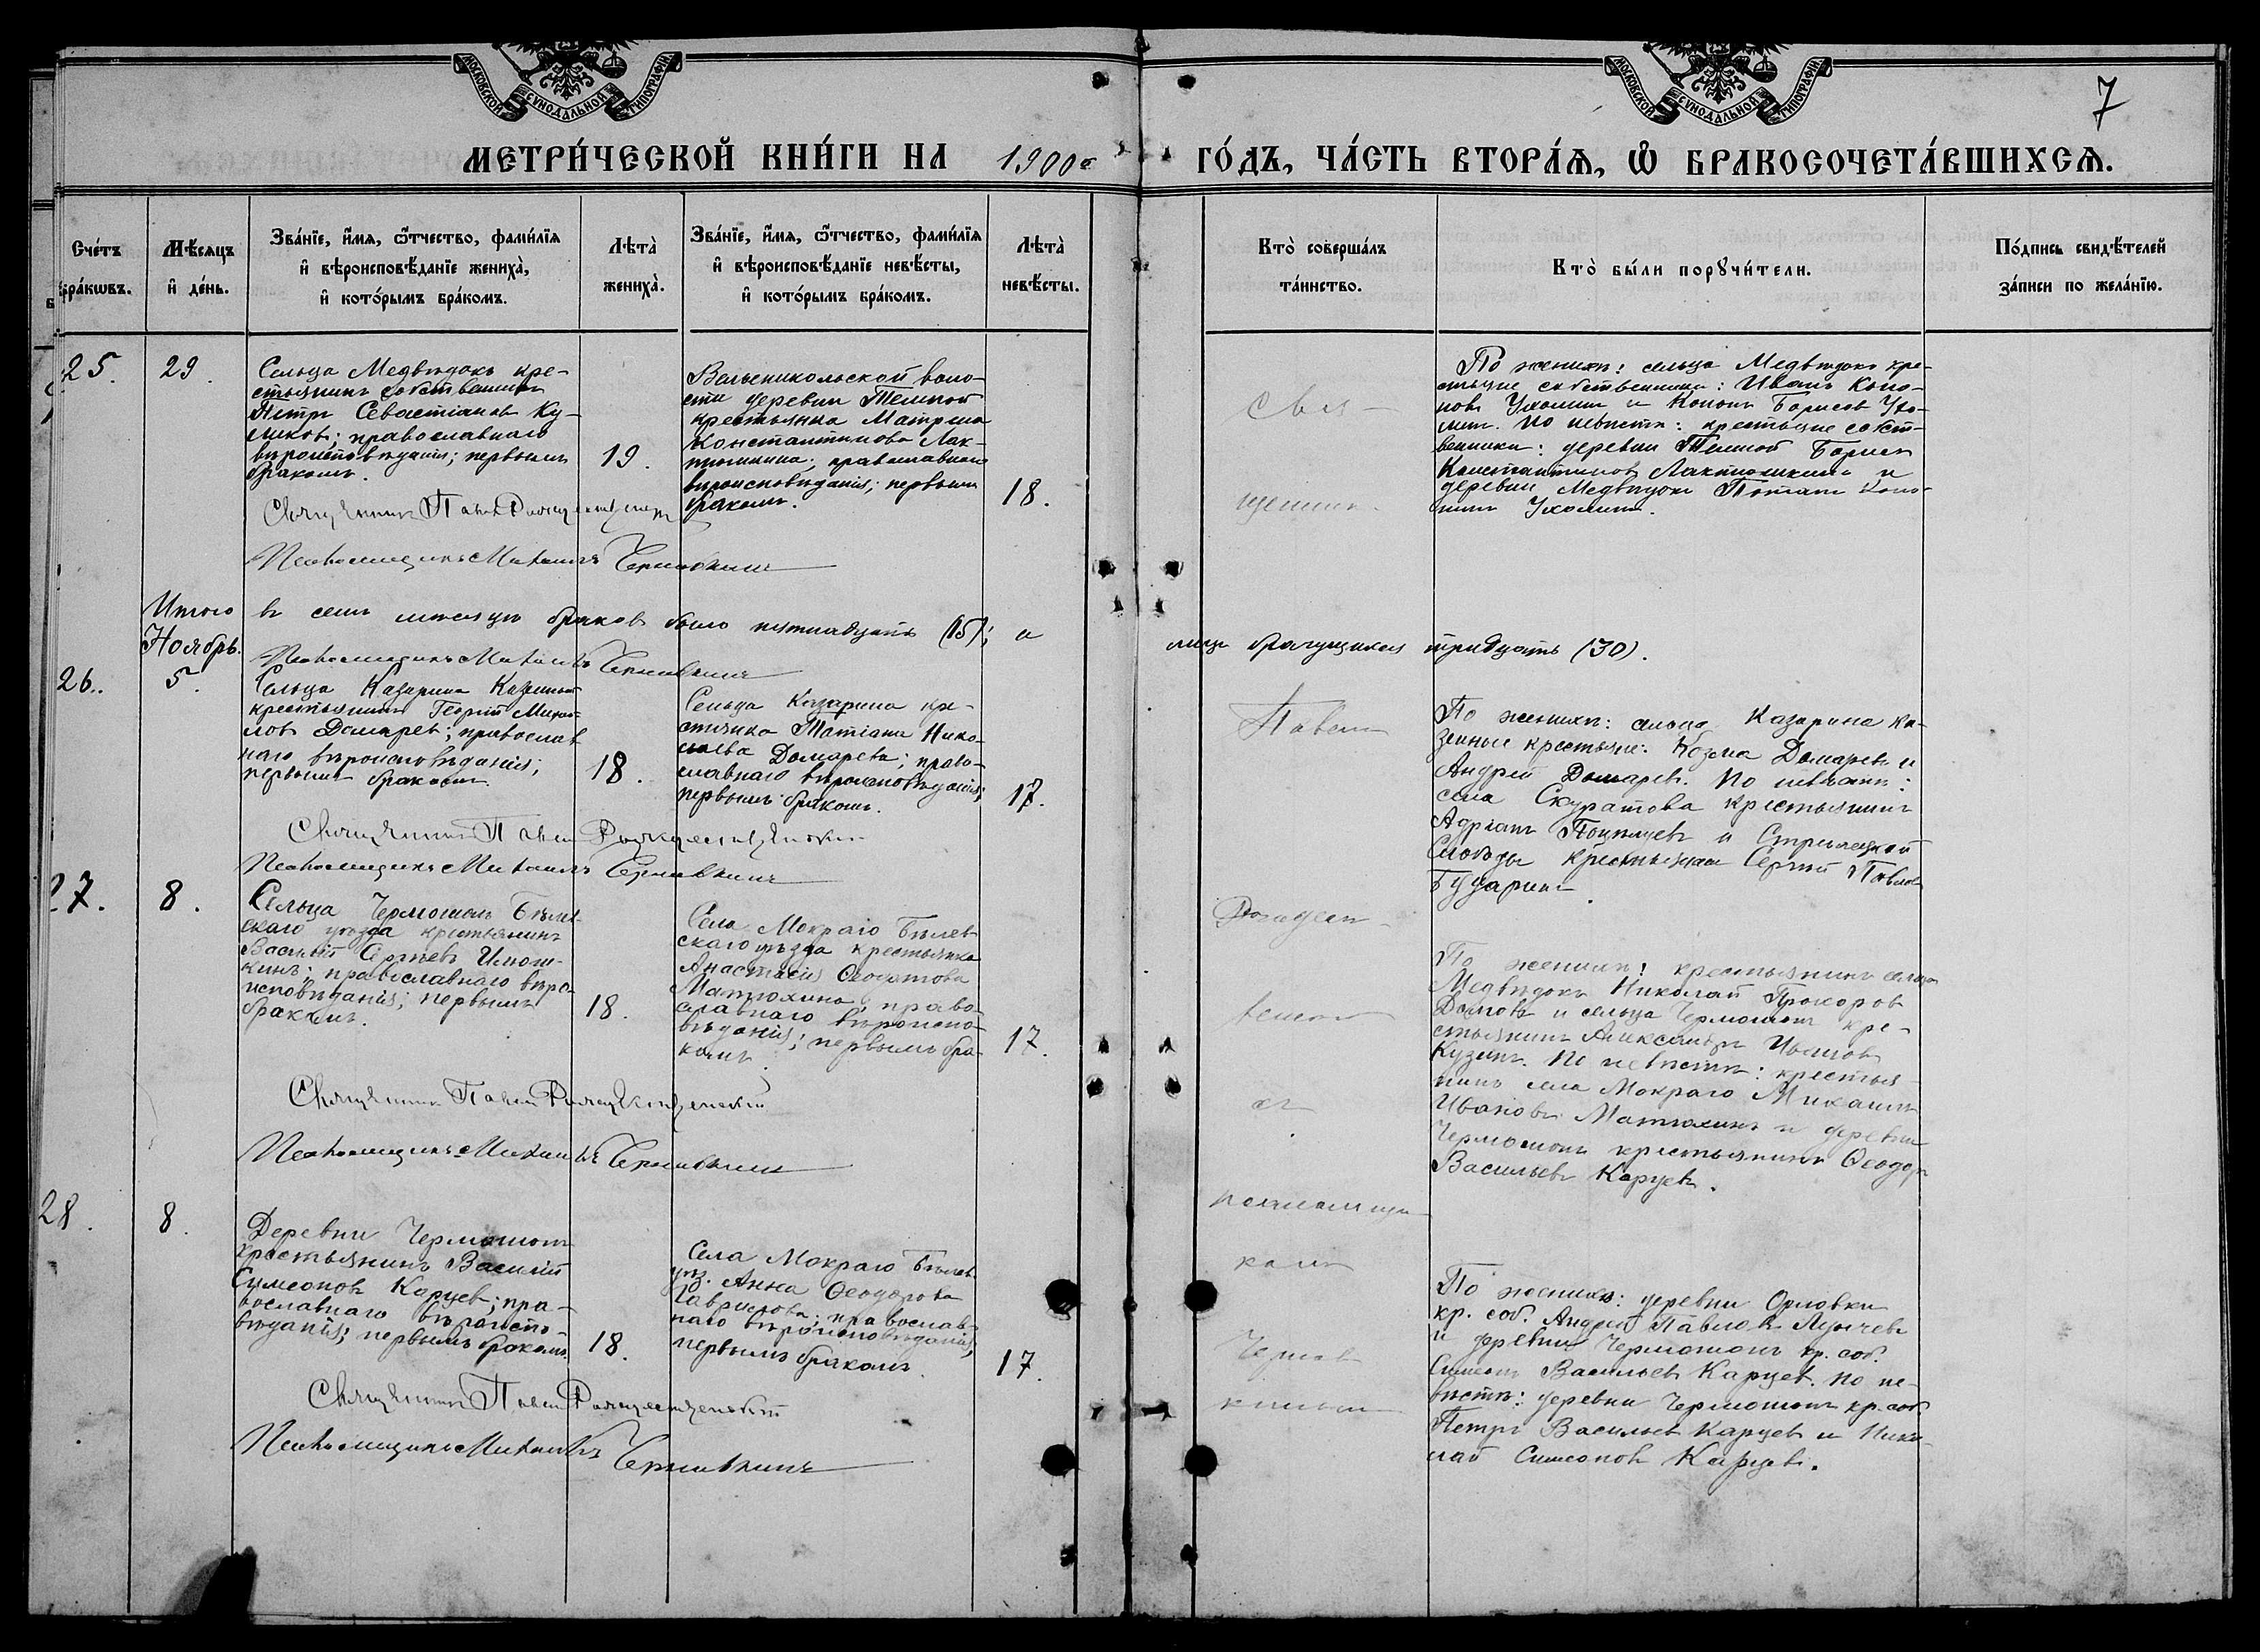 МОСКОВСКОЙ СѴНОДАЛЬНОЙ ТИПОГРАФІИ
МОСКОВСКОЙ СѴНОДАЛЬНОЙ ТИПОГРАФІИ
7
МЕТРИ́ЧЕСКОЙ КНИ́ГИ НА 1900й ГО́ДЪ, ЧА́СТЬ ВТОРА́Ѧ, Ѽ БРАКОСОЧЕТА́ВШИХСѦ.
Сче́тъ
бра́кѡвъ.
Мѣ́сяцъ
и҆ де́нь.
Зва́нїе, и҆́мѧ, ѻ҆́тчество, фами́лїѧ
и҆ вѣроисповѣ́данїе жениха̀,
и҆ кото́рымъ бра́комъ.
Лѣта̀
жениха̀.
Зва́нїе, и҆́мѧ, ѻ҆́тчество, фами́лїѧ
и҆ вѣроисповѣ́данїе невѣ́сты,
и҆ кото́рымъ бра́комъ.
Лѣта̀
невѣ́сты.
Кто̀ соверша́лъ
та́инство.
Кто̀ бы́ли порꙋчи́тели.
По́дпись свидѣ́телей
за́писи по жела́нїю.
25.
29.
Сельца Медвѣдокъ кре-
стьянинъ собственникъ
Петръ Севастіановъ Ку-
ликовъ; православнаго
вѣроисповѣданія; первымъ
бракомъ.
19.
Вельеникольской воло-
сти деревни Теплой
крестьянка Матрена
Константинова Лак-
тюшкина; православнаго
вѣроисповѣданія; первымъ
бракомъ.
18.
Свя-
щенникъ
По женихѣ: сельца Медвѣдокъ кре-
стьяне собственники: Иванъ Коно-
новъ Ухолинъ и Кононъ Борисовъ Ухо-
линъ. По невѣстѣ: крестьяне собст-
венники: деревни Теплой Борисъ
Константиновъ Лактюшкинъ и
деревни Медвѣдокъ Потапъ Коно-
новъ Ухолинъ.
Священникъ Павелъ Рождественскій
Псаломщикъ Михаилъ Чернавкинъ
Итого въ семъ мѣсяцѣ браковъ было пятнадцать (15); а лицъ брачущихся тридцать (30).
Ноябрь.
Псаломщикъ Михаилъ Чернавкинъ
26.
5.
Сельца Казарина Казенный
крестьянинъ Георгій Михаи-
ловъ Домаревъ; православ
наго вѣроисповѣданія;
первымъ бракомъ.
18.
Сельца Казарина кре-
стьянка Татіана Нико-
лаева Домарева; право-
славнаго вѣроисповѣданія;
первымъ бракомъ.
17.
Павелъ
По женихѣ: сельца Казарина ка-
зенные крестьяне: Козма Домаревъ и
Андрей Домаревъ. По невѣстѣ:
села Скуратова крестьянинъ
Адріанъ и Стрѣлецкой
Слободы крестьянинъ Сергій Павловъ
Бударинъ.
Священникъ Павелъ Рождественскій
Псаломщикъ Михаилъ Чернавкинъ
27.
8.
Сельца Чермошенъ Бѣлев-
скаго уѣзда крестьянинъ
Василій Сергѣевъ
православнаго вѣро-
исповѣданія; первымъ
бракомъ.
18.
Села Мокраго Бѣлев-
скаго уѣзда крестьянка
Анастасія Ѳеодотова
Матюхина; право-
славнаго вѣроиспо-
вѣданія; первымъ бра-
комъ.
17.
Рождест-
венскій
съ
По женихѣ: крестьянинъ сельца
Медвѣдокъ Николай Прохоровъ
и сельца Чермошенъ кре-
стьянинъ Александръ Ивановъ
Кузинъ. По невѣстѣ: крестья
нинъ села Мокраго Михаилъ
Ивановъ Матюхинъ и деревни
Чермошенъ крестьянинъ Ѳеодоръ
Васильевъ Карцевъ.
Священникъ Павелъ Рождественскій
Псаломщикъ Михаилъ Чернавкинъ
28.
8.
Деревни Чермошенъ
крестьянинъ Василій
Симеоновъ Карцевъ; пра-
вославнаго вѣроиспо-
вѣданія; первымъ бракомъ.
18.
Села Мокраго Бѣлев.
уѣз. Анна Ѳеодорова
Гаврилова; православ-
наго вѣроисповѣданія;
первымъ бракомъ.
17.
псаломщи-
комъ
Чернав-
кинымъ
По женихѣ: деревни Орловки
кр. соб. Андрей Павловъ
и деревни Чермошенъ кр. соб.
Симеонъ Васильевъ Карцевъ. По не-
вѣстѣ: деревни Чермошенъ кр. соб.
Петръ Васильевъ Карцевъ и Нико-
лай Симеоновъ Карцевъ.
Священникъ Павелъ Рождественскій
Псаломщикъ Михаилъ Чернавкинъ